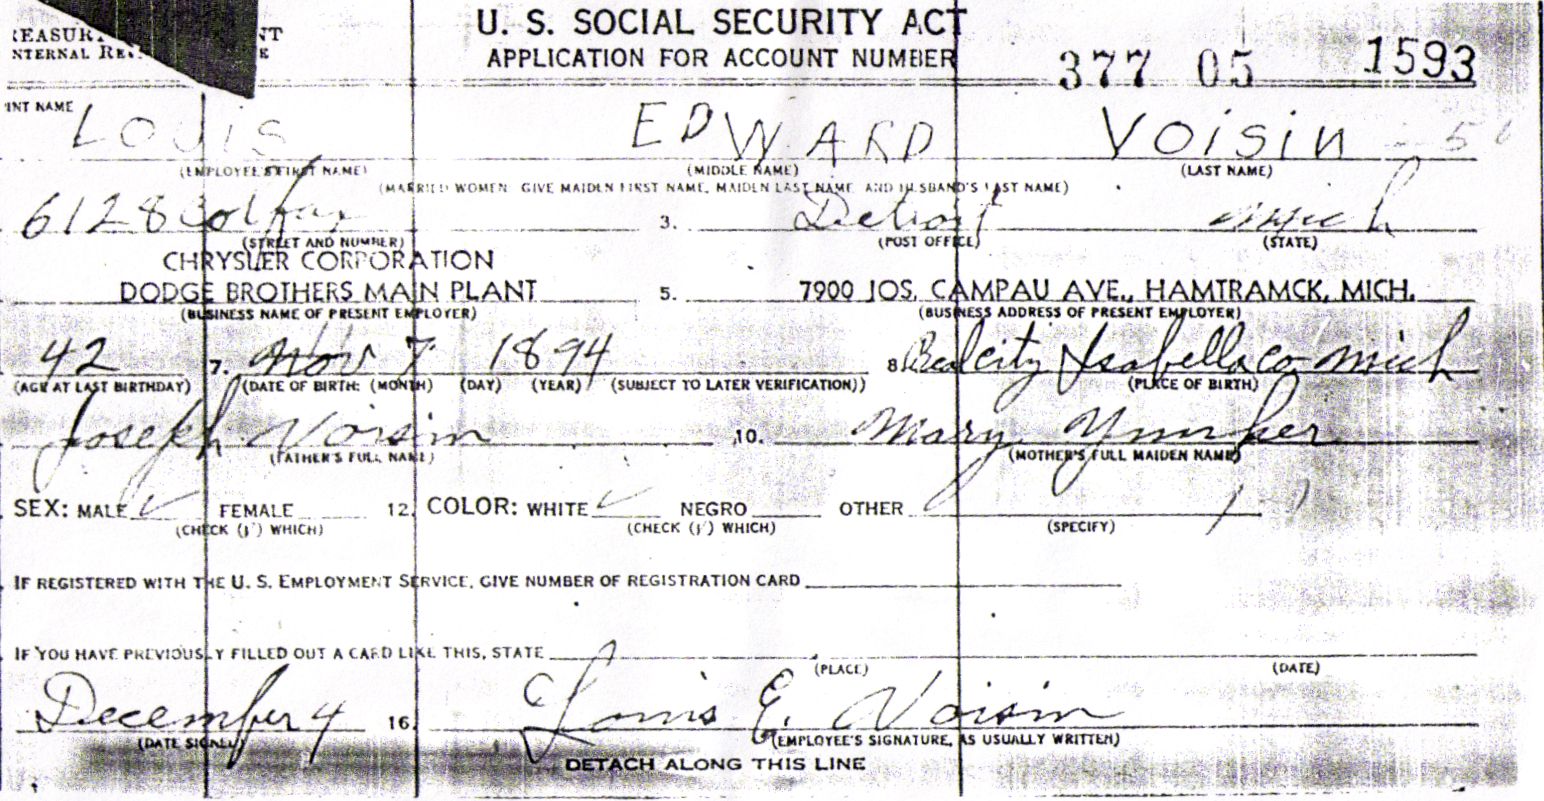 U. S. SOCIAL SECURITY ACT
APPLICATION FOR ACCOUNT NUMBER
377 05 1593
INT NAME
LOUIS EDWARD VOISIN
(EMPLOYEE'S FIRST NAME) (MIDDLE NAME) (LAST NAME)
(MARRIED WOMEN GIVE MAIDEN FIRST NAME, MAIDEN LAST NAME, AND HUSBAND'S LAST NAME)
6128 Colfax 3. Detroit Mich
(STREET AND NUMBER) (POST OFFICE) (STATE)
CHRYSLER CORPORATION
DODGE BROTHERS MAIN PLANT 5. 7900 JOS. CAMPAU AVE., HAMTRAMCK, MICH.
(BUSINESS NAME OF PRESENT EMPLOYER) (BUSINESS ADDRESS OF PRESENT EMPLOYER)
42 7. Nov 7 1894 8. Bealcity Isabella co Mich
(AGE AT LAST BIRTHDAY) (DATE OF BIRTH: (MONTH) (DAY) (YEAR) (SUBJECT TO LATER VERIFICATION)) (PLACE OF BIRTH)
Joseph Voisin 10. Mary
(FATHER'S FULL NAME) (MOTHER'S FULL MAIDEN NAME)
SEX: MALE ✓ FEMALE 12. COLOR: WHITE ✓ NEGRO OTHER
(CHECK (✓) WHICH) (CHECK (✓) WHICH) (SPECIFY)
IF REGISTERED WITH THE U. S. EMPLOYMENT SERVICE, GIVE NUMBER OF REGISTRATION CARD
IF YOU HAVE PREVIOUSLY FILLED OUT A CARD LIKE THIS, STATE
(PLACE) (DATE)
December 4 16. Louis E. Voisin
(DATE SIGNED) (EMPLOYEE'S SIGNATURE, AS USUALLY WRITTEN)
DETACH ALONG THIS LINE